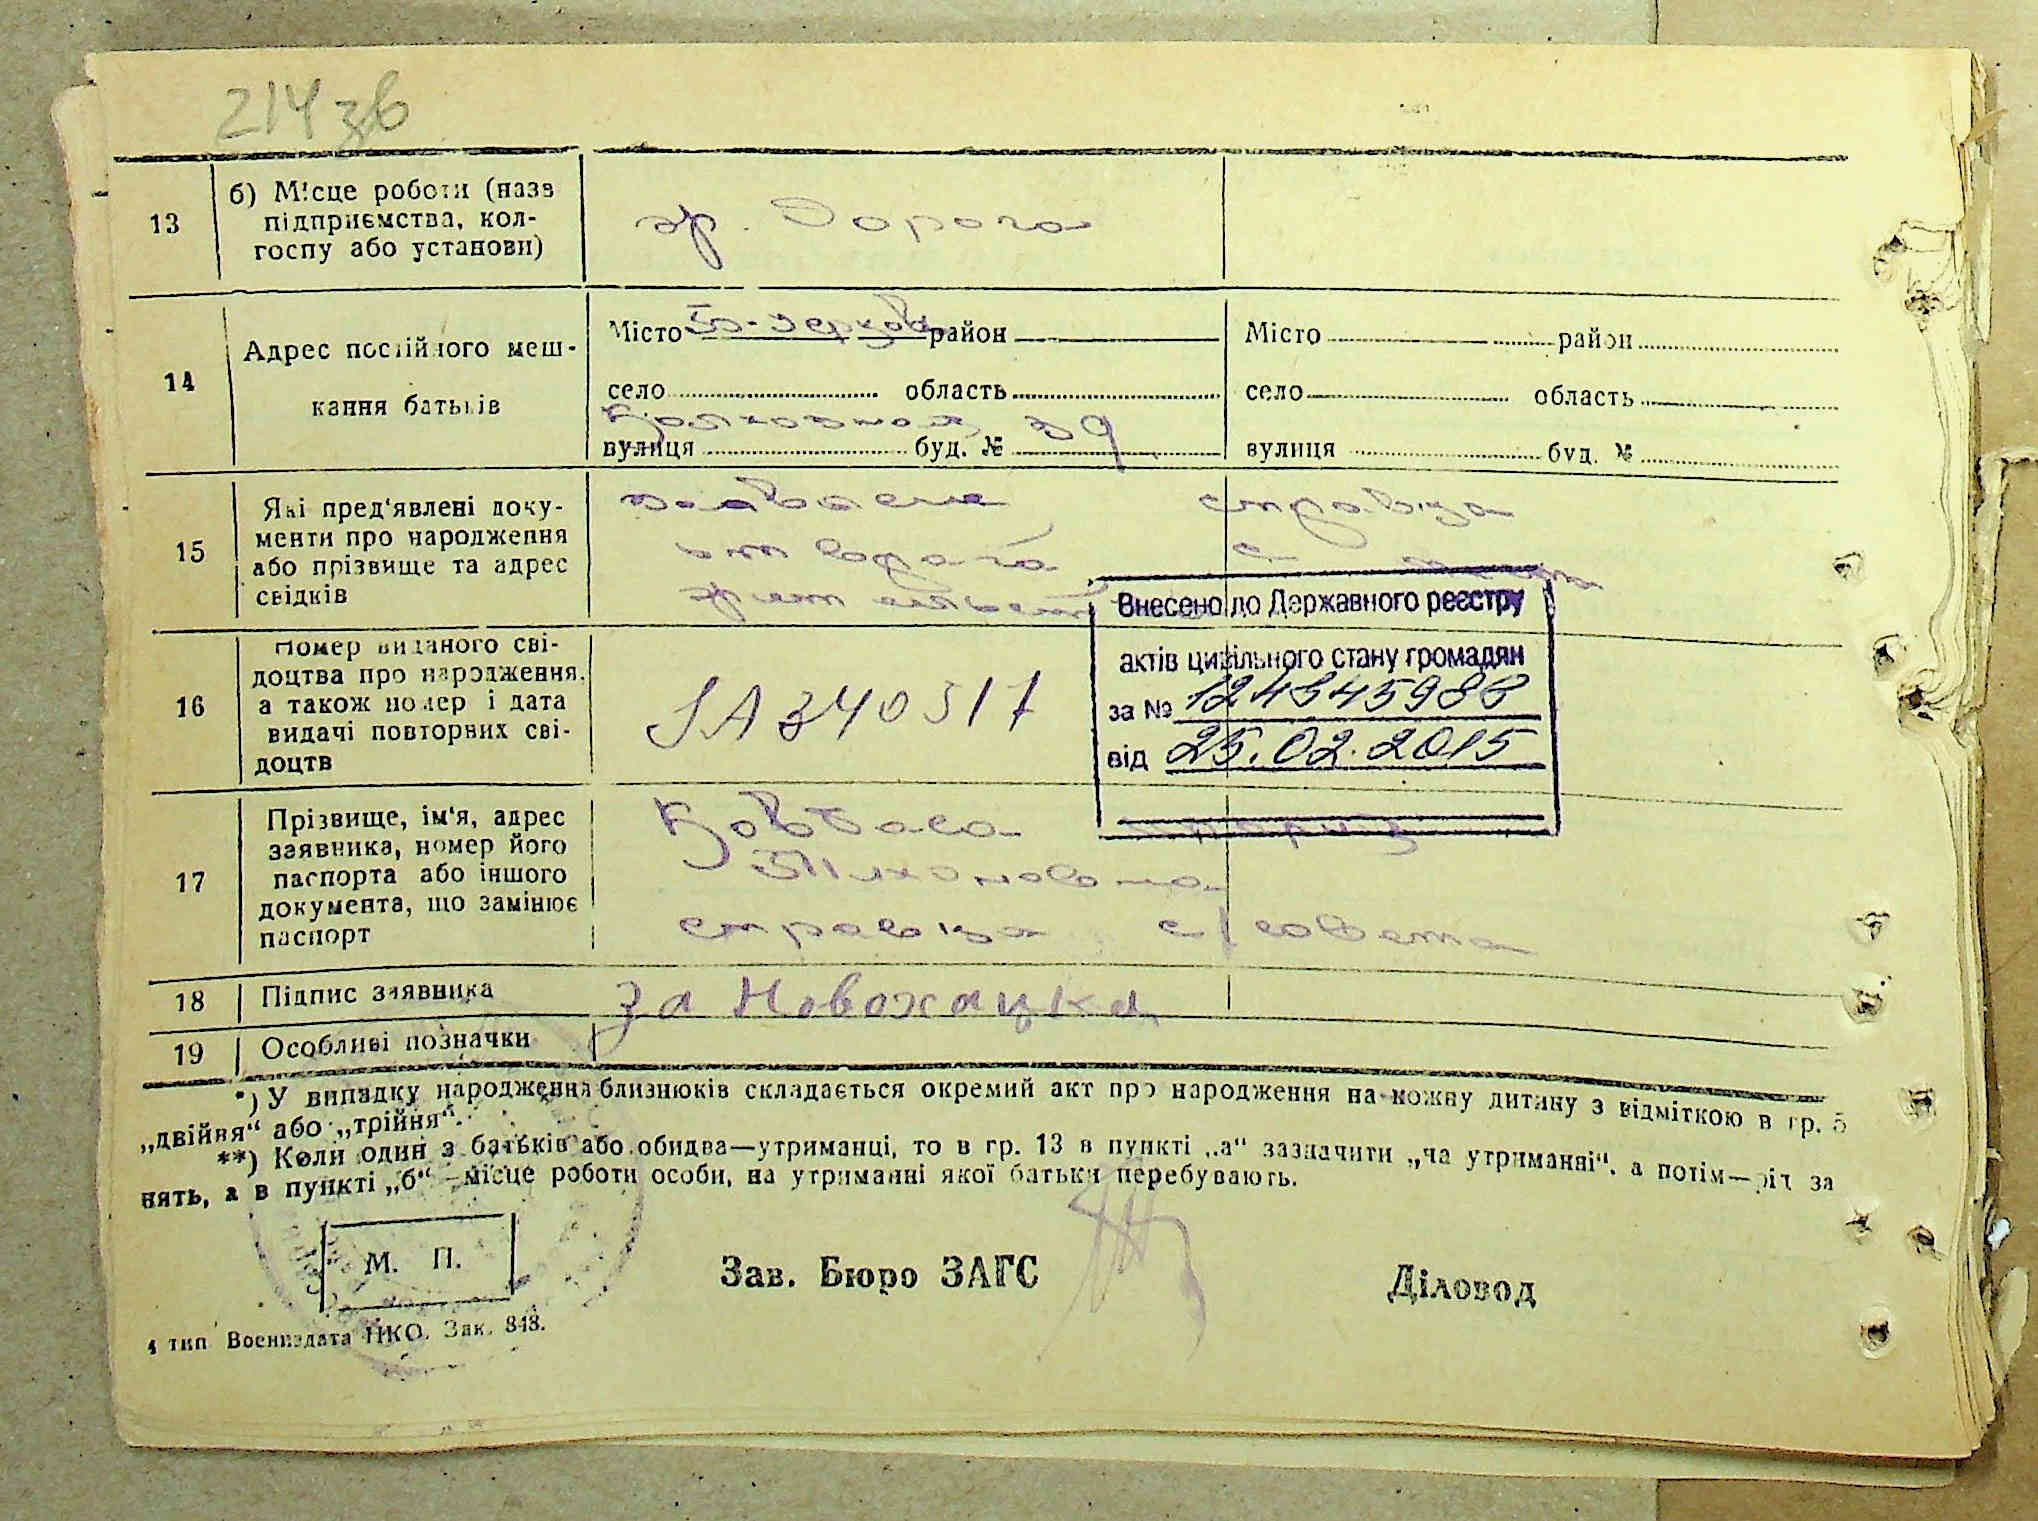 214 зв
13
б) Місце роботи (назв
підприємства, кол-
госпу або установи)
зр. Дорога
14
Адрес постійного меш-
кання батьків
Місто Бл-Церков район
село область
вулиця буд. № 39
Місто район
село область
вулиця буд. №
15
Які пред'явлені доку-
менти про народження
або прізвище та адрес
свідків
справка
от врага с
16
Номер виданого сві-
доцтва про народження,
а також номер і дата
видачі повторних сві-
доцтв
340517
Внесено до Державного реєстру
актів цивільного стану громадян
за №
від 25.02.2015
17
Прізвище, ім'я, адрес
заявника, номер його
паспорта або іншого
документа, що замінює
паспорт
Ковбаса
Тихоновна
справка с/совета
18
Підпис заявника
за Новохацка
19
Особливі позначки
*) У випадку народження близнюків складається окремий акт про народження на кожну дитину з відміткою в гр. 5
„двійня“ або „трійня“.
**) Коли один з батьків або обидва—утриманці, то в гр. 13 в пункті „а“ зазначити „на утриманні“, а потім—рід за
нять, а в пункті „б“—місце роботи особи, на утриманні якої батьки перебувають.
М. П.
Зав. Бюро ЗАГС
Діловод
4 тип Воениздата НКО. Зак. 848.